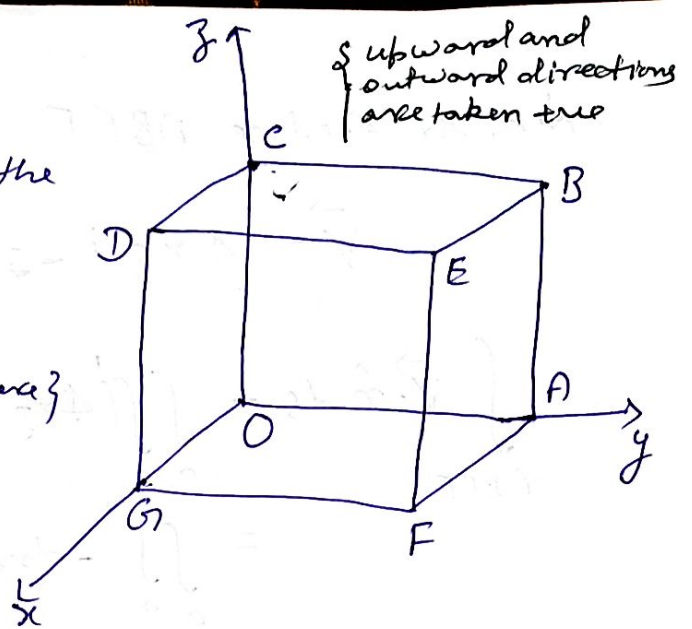 z
{ upward and
outward directions
are taken +ve
the
C
B
D
E
A
O
y
G
F
x